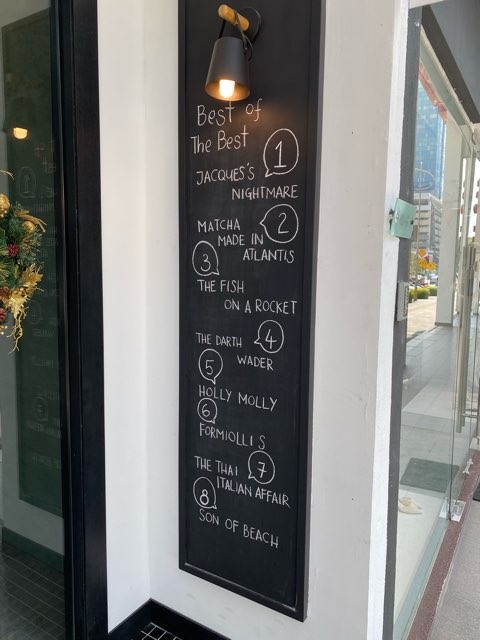 Best of
The Best
1
JACQUES'S
NIGHTMARE
2
MATCHA
MADE IN
ATLANTIS
3
THE FISH
ON A ROCKET
4
THE DARTH
WADER
5
HOLLY MOLLY
6
FORMIOLLIS
7
THE THAI
ITALIAN AFFAIR
8
SON OF BEACH